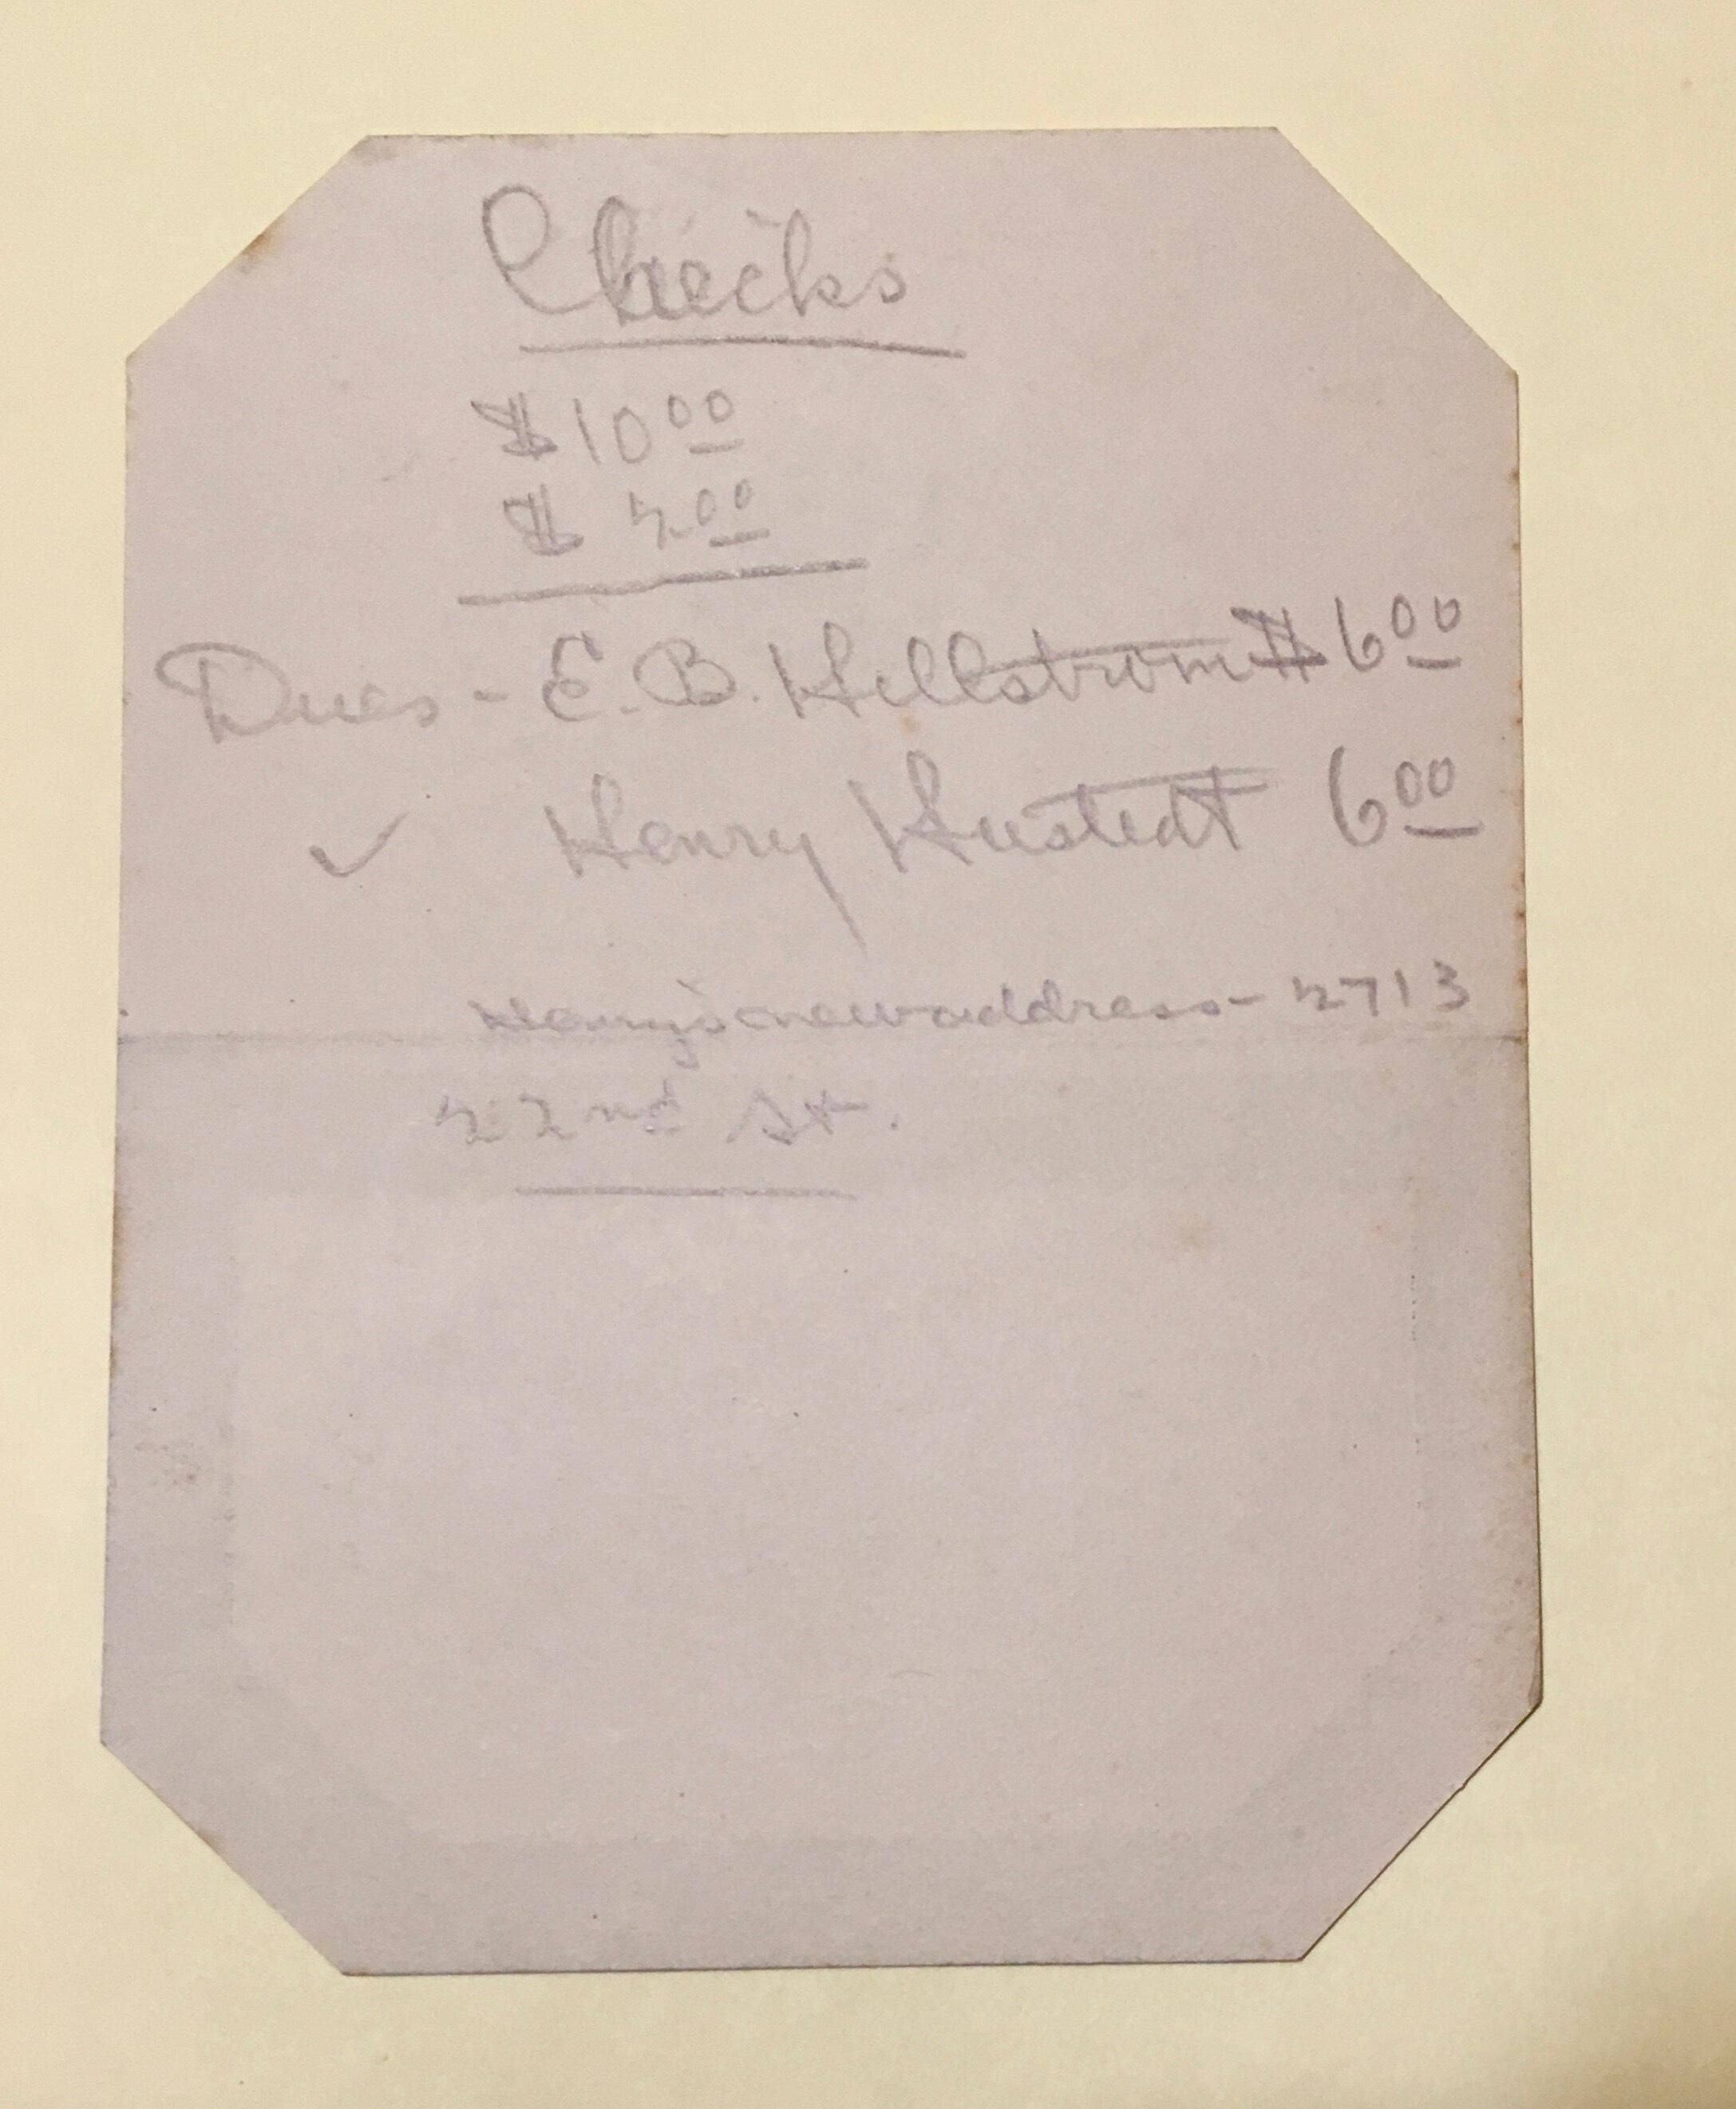 Checks
$10.00
$ 2.00
Dues - E. B. Hellstrom $6.00
✓ Henry Hustedt 6.00
Henry's new address - 2713
22nd St.